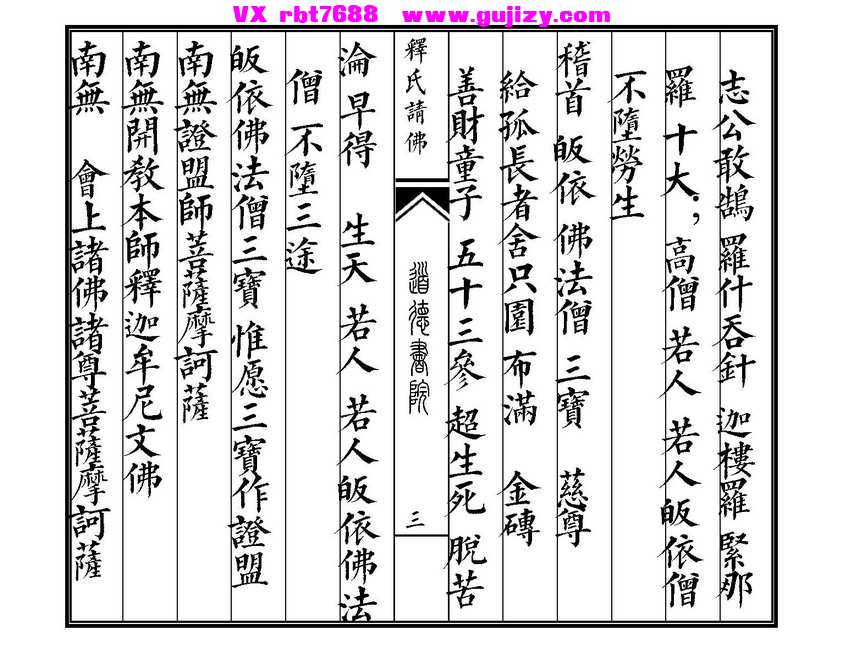 VX rbt7688 www.gujizy.com
志公敢鵠 羅什吞針 迦樓羅 緊那
羅 十大；高僧 若人 若人皈依僧
不墮勞生
稽首 皈依 佛法僧 三寶 慈尊
給孤長者舍只園 布滿 金磚
善財童子 五十三參 超生死 脫苦
釋氏請佛 道德書院 三
淪 早得 生天 若人 若人皈依佛法
僧 不墮三途
皈依佛法僧三寶 惟愿三寶作證盟
南無證盟師菩薩摩訶薩
南無開教本師釋迦牟尼文佛
南無 會上諸佛諸尊菩薩摩訶薩